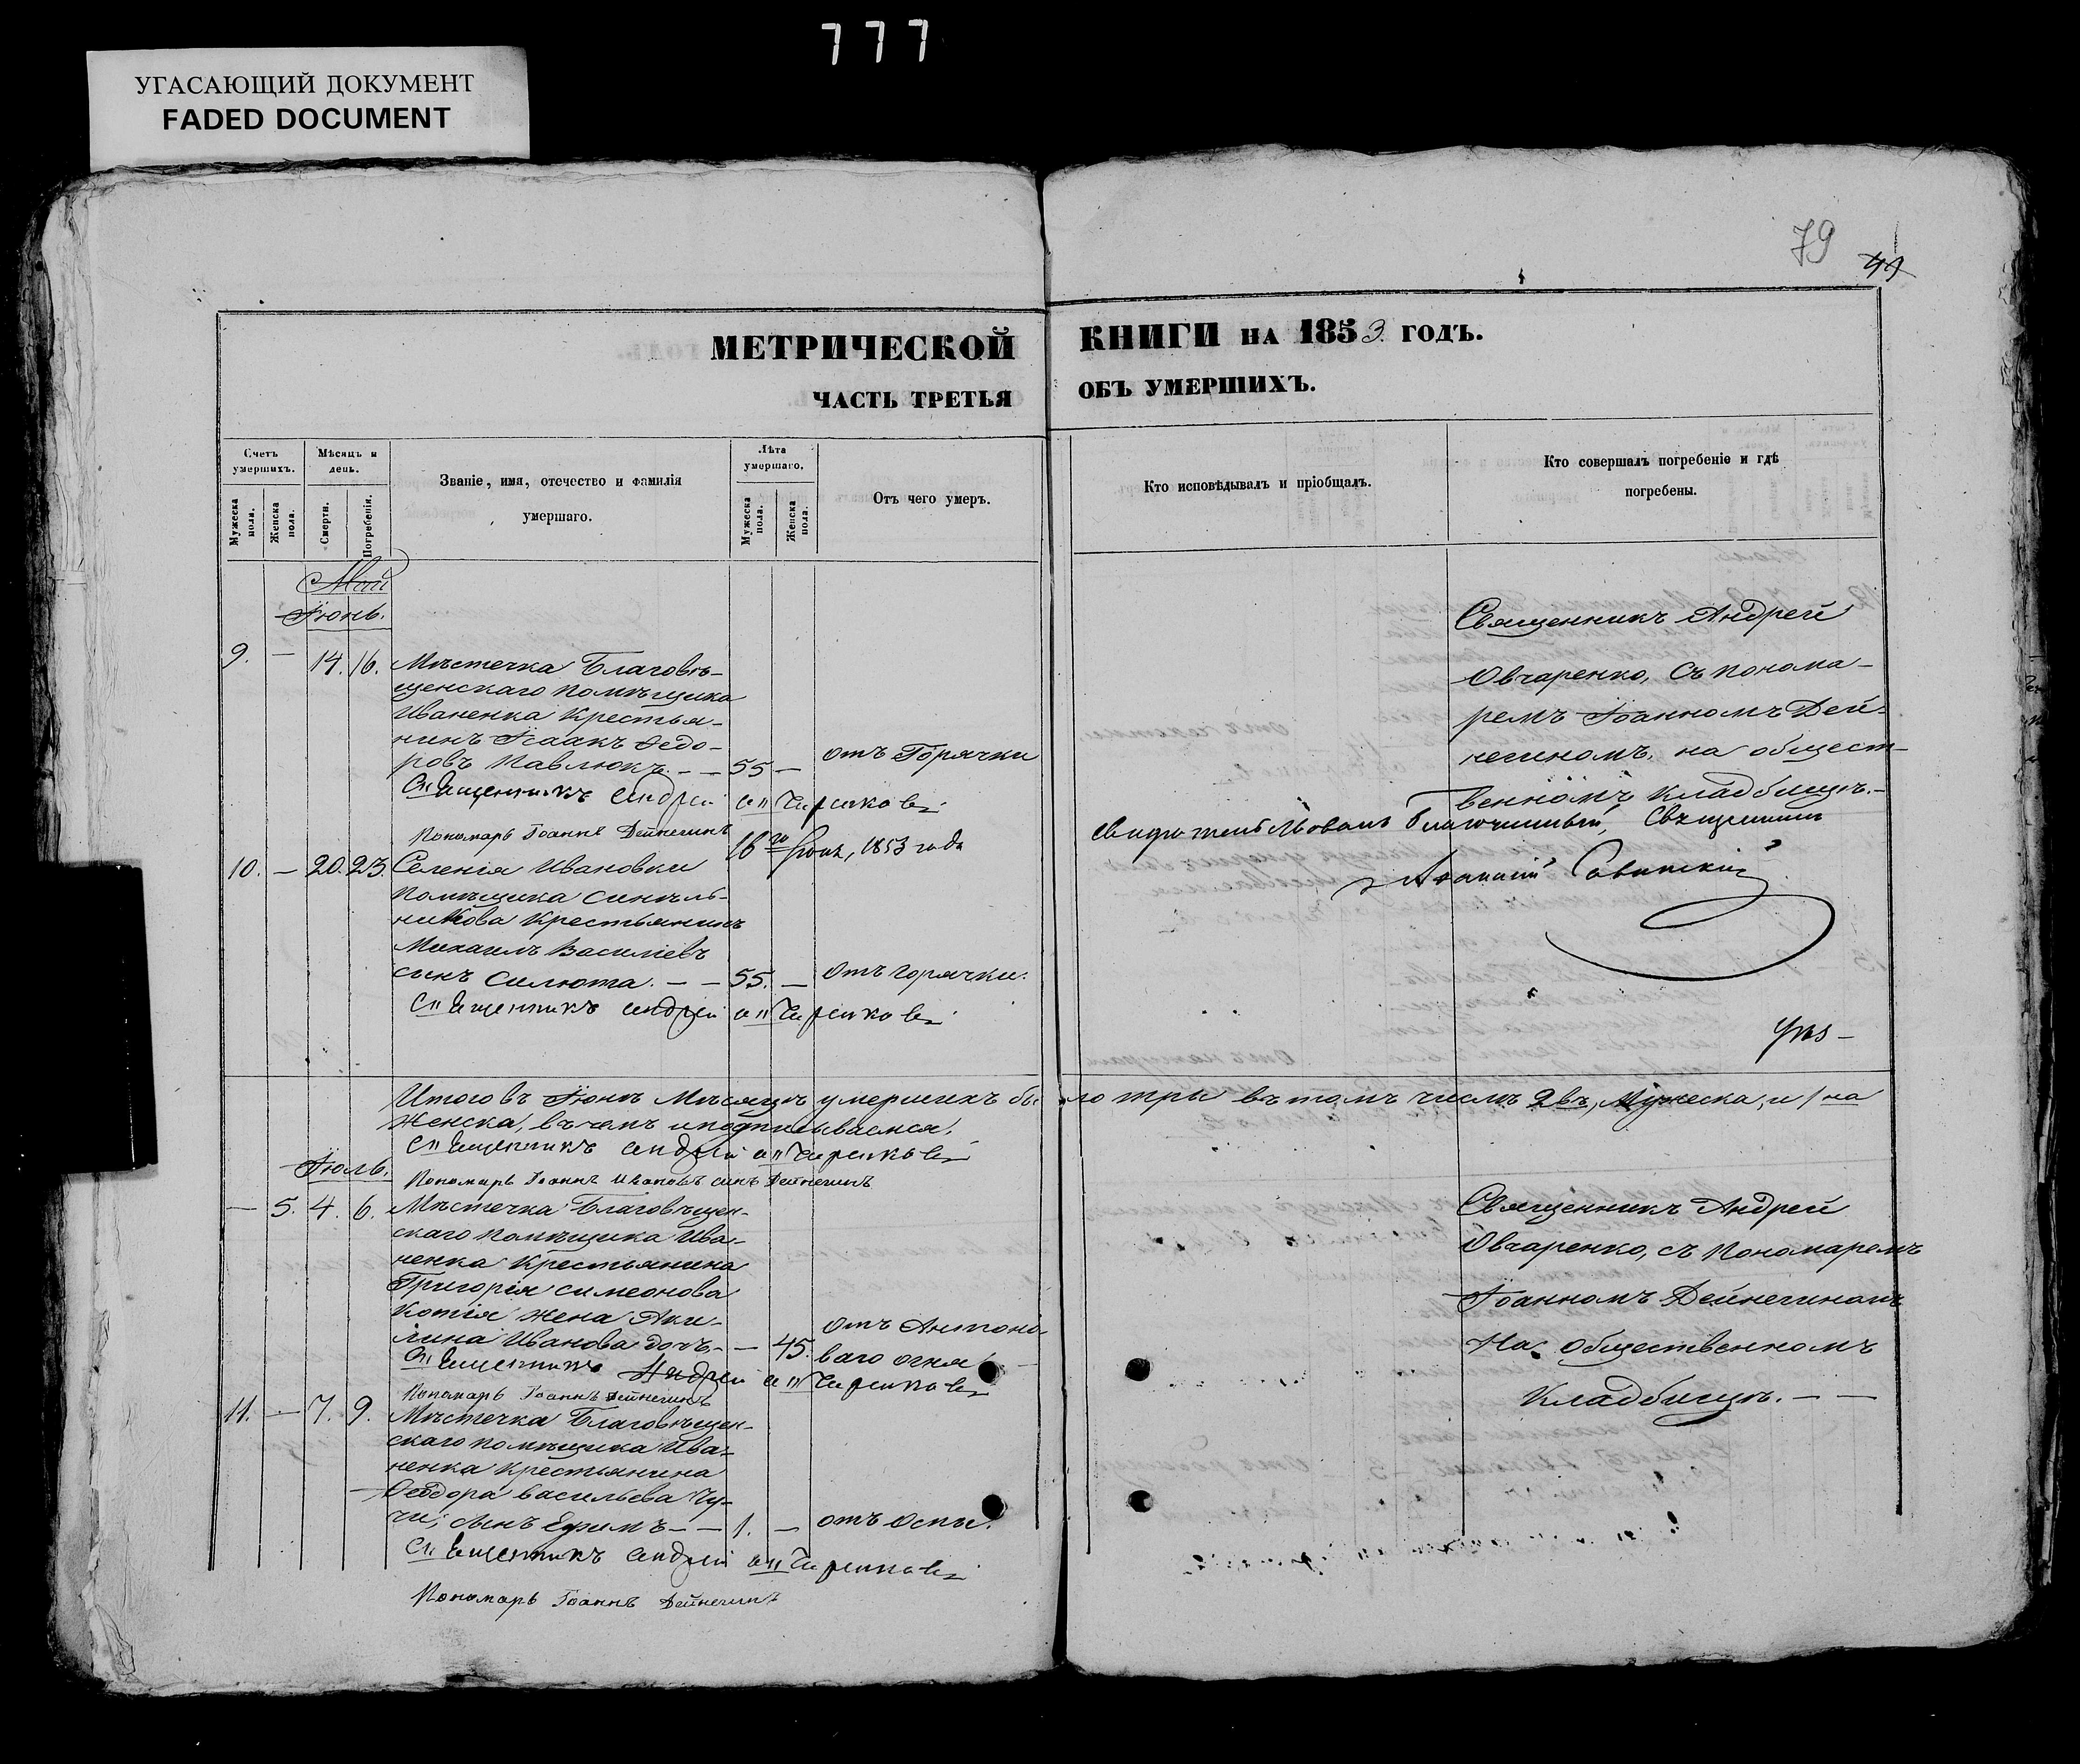 777
УГАСАЮЩИЙ ДОКУМЕНТ
FADED DOCUMENT
79
МЕТРИЧЕСКОЙ КНИГИ НА 1853 ГОДЪ.
ЧАСТЬ ТРЕТЬЯ ОБЪ УМЕРШИХЪ.
Счетъ умершихъ.
Мужеска пола.
Женска пола.
Мѣсяцъ и день.
Смерти.
Погребенія.
Званіе, имя, отечество и фамилія умершаго.
Лѣта умершаго.
Мужеска пола.
Женска пола.
Отъ чего умеръ.
Кто исповѣдывалъ и пріобщалъ.
Кто совершалъ погребеніе и гдѣ погребены.
Май
Іюнь.
9. — 14. 16. Мѣстечка Благовѣ-
щенскаго помѣщика
Иваненка Крестья-
нинъ Ісаакъ Ѳедо-
ровъ Павлюкъ. — — 55 — отъ Горячки
Священникъ Андрей
Пономарь Іоаннъ Дейнегинъ
Священникъ Андрей
Овчаренко, съ понома-
ремъ Іоанномъ Дей-
негиномъ, на общест-
венномъ кладбищѣ.—
16го Іюня, 1853 года
свидѣтельствовалъ Благочинный, Священникъ
10. — 20. 23. Селенія Ивановки
помѣщика Синель-
никова Крестьянинъ
Михаилъ Василіевъ
сынъ Силюта. — — 55. — Отъ горячки.
Священникъ Андрей
Итого въ Іюнѣ Мѣсяцѣ умершихъ бы ло три въ томъ числѣ 2въ, Мужеска, и 1на
Женска, въ чемъ и подписываемся.
Священникъ Андрей
Іюль.
Пономарь Іоаннъ Ивановъ сынъ Дейнегинъ
— 5. 4. 6. Мѣстечка Благовѣщен-
скаго помѣщика Ива-
ненка Крестьянина
Григорія Симеонова
Котія жена Аки-
лина Иванова дочь. — — 45. отъ Антоно-
ваго огня
Священникъ Андрей
Пономарь Іоаннъ Дейнегинъ
Священникъ Андрей
Овчаренко, съ Пономаремъ
Іоанномъ Дейнегиномъ
На общественномъ
Кладбищѣ. — —
11. — 7. 9. Мѣстечка Благовѣщен-
скаго помѣщика Ива-
ненка Крестьянина
Ѳеодора Васильева Чу-
чи, сынъ Ефимъ — — 1. — отъ Оспы.
Священникъ Андрей
Пономарь Іоаннъ Дейнегинъ